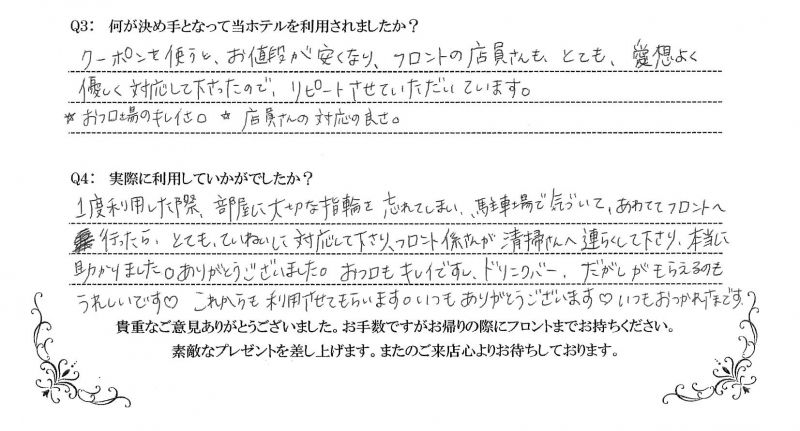 Q3: 何が決め手となって当ホテルを利用されましたか？
クーポンを使うと、お値段が安くなり、フロントの店員さんも、とても、愛想よく
優しく対応して下さったので、リピートさせていただいています。
☆おフロ場のキレイさ。 ☆ 店員さんの対応の良さ。
Q4: 実際に利用していかがでしたか？
1度利用した際、部屋に大切な指輪を忘れてしまい、駐車場で気づいて、あわててフロントへ
行ったら、とても、ていねいに対応して下さり、フロント係さんが清掃さんへ連らくして下さり、本当に
助かりました。ありがとうございました。おフロもキレイですし、ドリンクバー、だがしがもらえるのも
うれしいです♡ これからも利用させてもらいます。いつもありがとうございます♡いつもおつかれさまです。
貴重なご意見ありがとうございました。お手数ですがお帰りの際にフロントまでお持ちください。
素敵なプレゼントを差し上げます。またのご来店心よりお待ちしております。